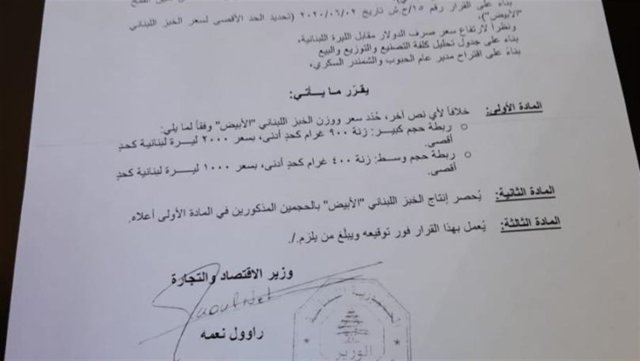 بناء على القرار رقم ١٥/ح.ش تاريخ ٢٠٢٠/٠٦/٠٢ (تحديد الحد الأقصى لسعر الخبز اللبناني
"الأبيض")،
ونظراً لارتفاع سعر صرف الدولار مقابل الليرة اللبنانية،
بناء على جدول تحليل كلفة التصنيع والتوزيع والبيع
بناءً على اقتراح مدير عام الحبوب والشمندر السكري،
يقرّر ما يـأتي:
المادة الأولى: خلافاً لأي نص آخر، حُدد سعر ووزن الخبز اللبناني "الأبيض" وفقاً لما يلي:
○ ربطة حجم كبير: زنة ٩٠٠ غرام كحدٍ أدنى، بسعر ٢٠٠٠ ليرة لبنانية كحدٍ
أقصى.
○ ربطة حجم وسط: زنة ٤٠٠ غرام كحدٍ أدنى، بسعر ١٠٠٠ ليرة لبنانية كحدٍ
أقصى.
المادة الثانية: يُحصر إنتاج الخبز اللبناني "الأبيض" بالحجمين المذكورين في المادة الأولى أعلاه.
المادة الثالثة: يُعمل بهذا القرار فور توقيعه ويبلغ من يلزم./.
وزير الاقتصاد والتجارة
راوول نعمه
الوزير